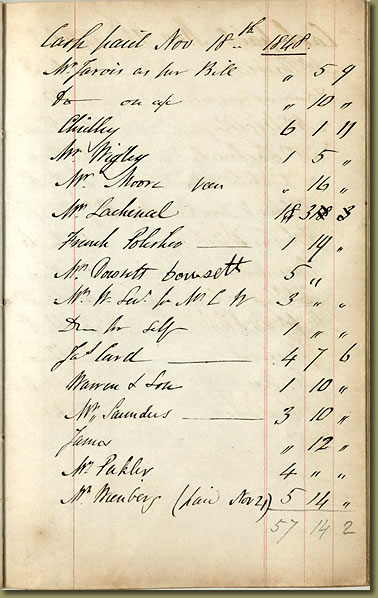 Cash paid Nov 18th 1848.
Mr Jarvis as per Bill " 5 9
Do — on a/c " 10 "
Chidley 6 1 11
Mr Wigley 1 5 "
Mr. Moore van " 16 "
Mr Lachenal 18 3
French Polisher — 1 19 "
Mr Dowsett bowsett 5 "
Mr. W. Senr. for Mr C W 3 " "
Do — for self 1 " "
Jas Card — 4 7 6
Warren & Son 1 10 "
Mr. Saunders — 3 10 "
James " 12 "
Mr. 4 " "
Mr (paid Nov 21) 5 14 "
57 14 2